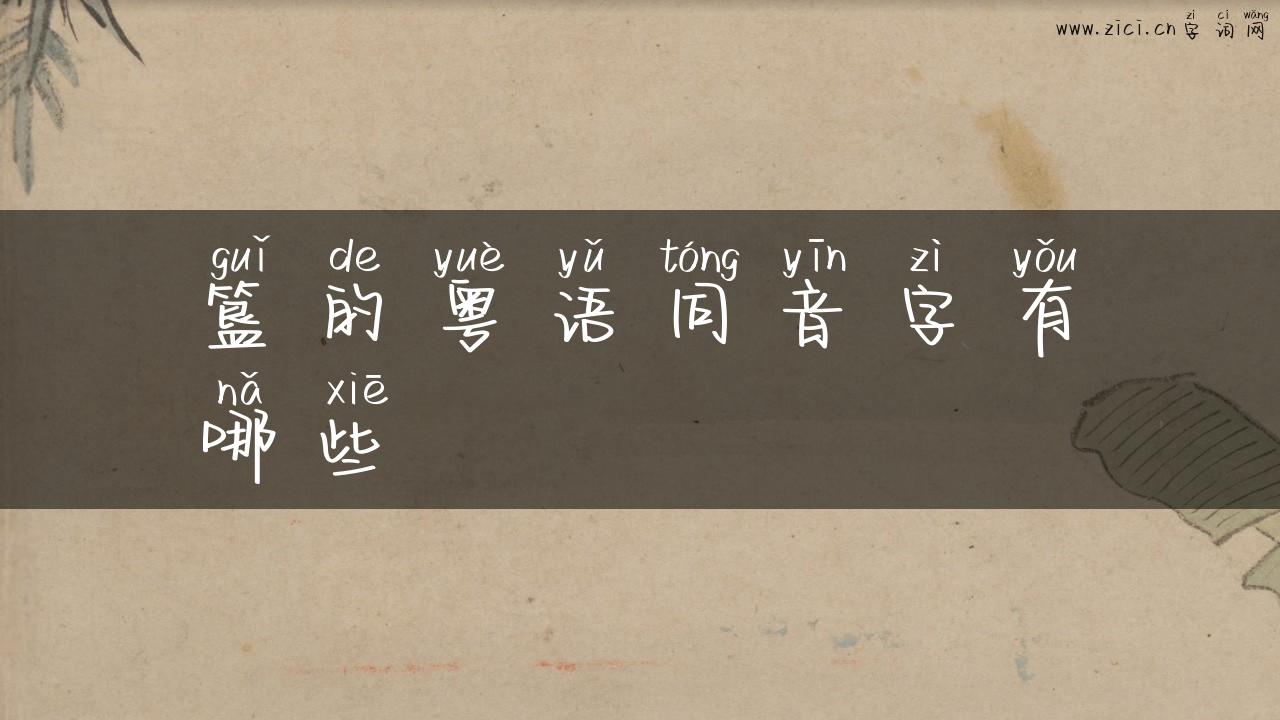 zì cí wǎng
www.zici.cn字词网
guǐ de yuè yǔ tóng yīn zì yǒu
簋的粤语同音字有
nǎ xiē
哪些